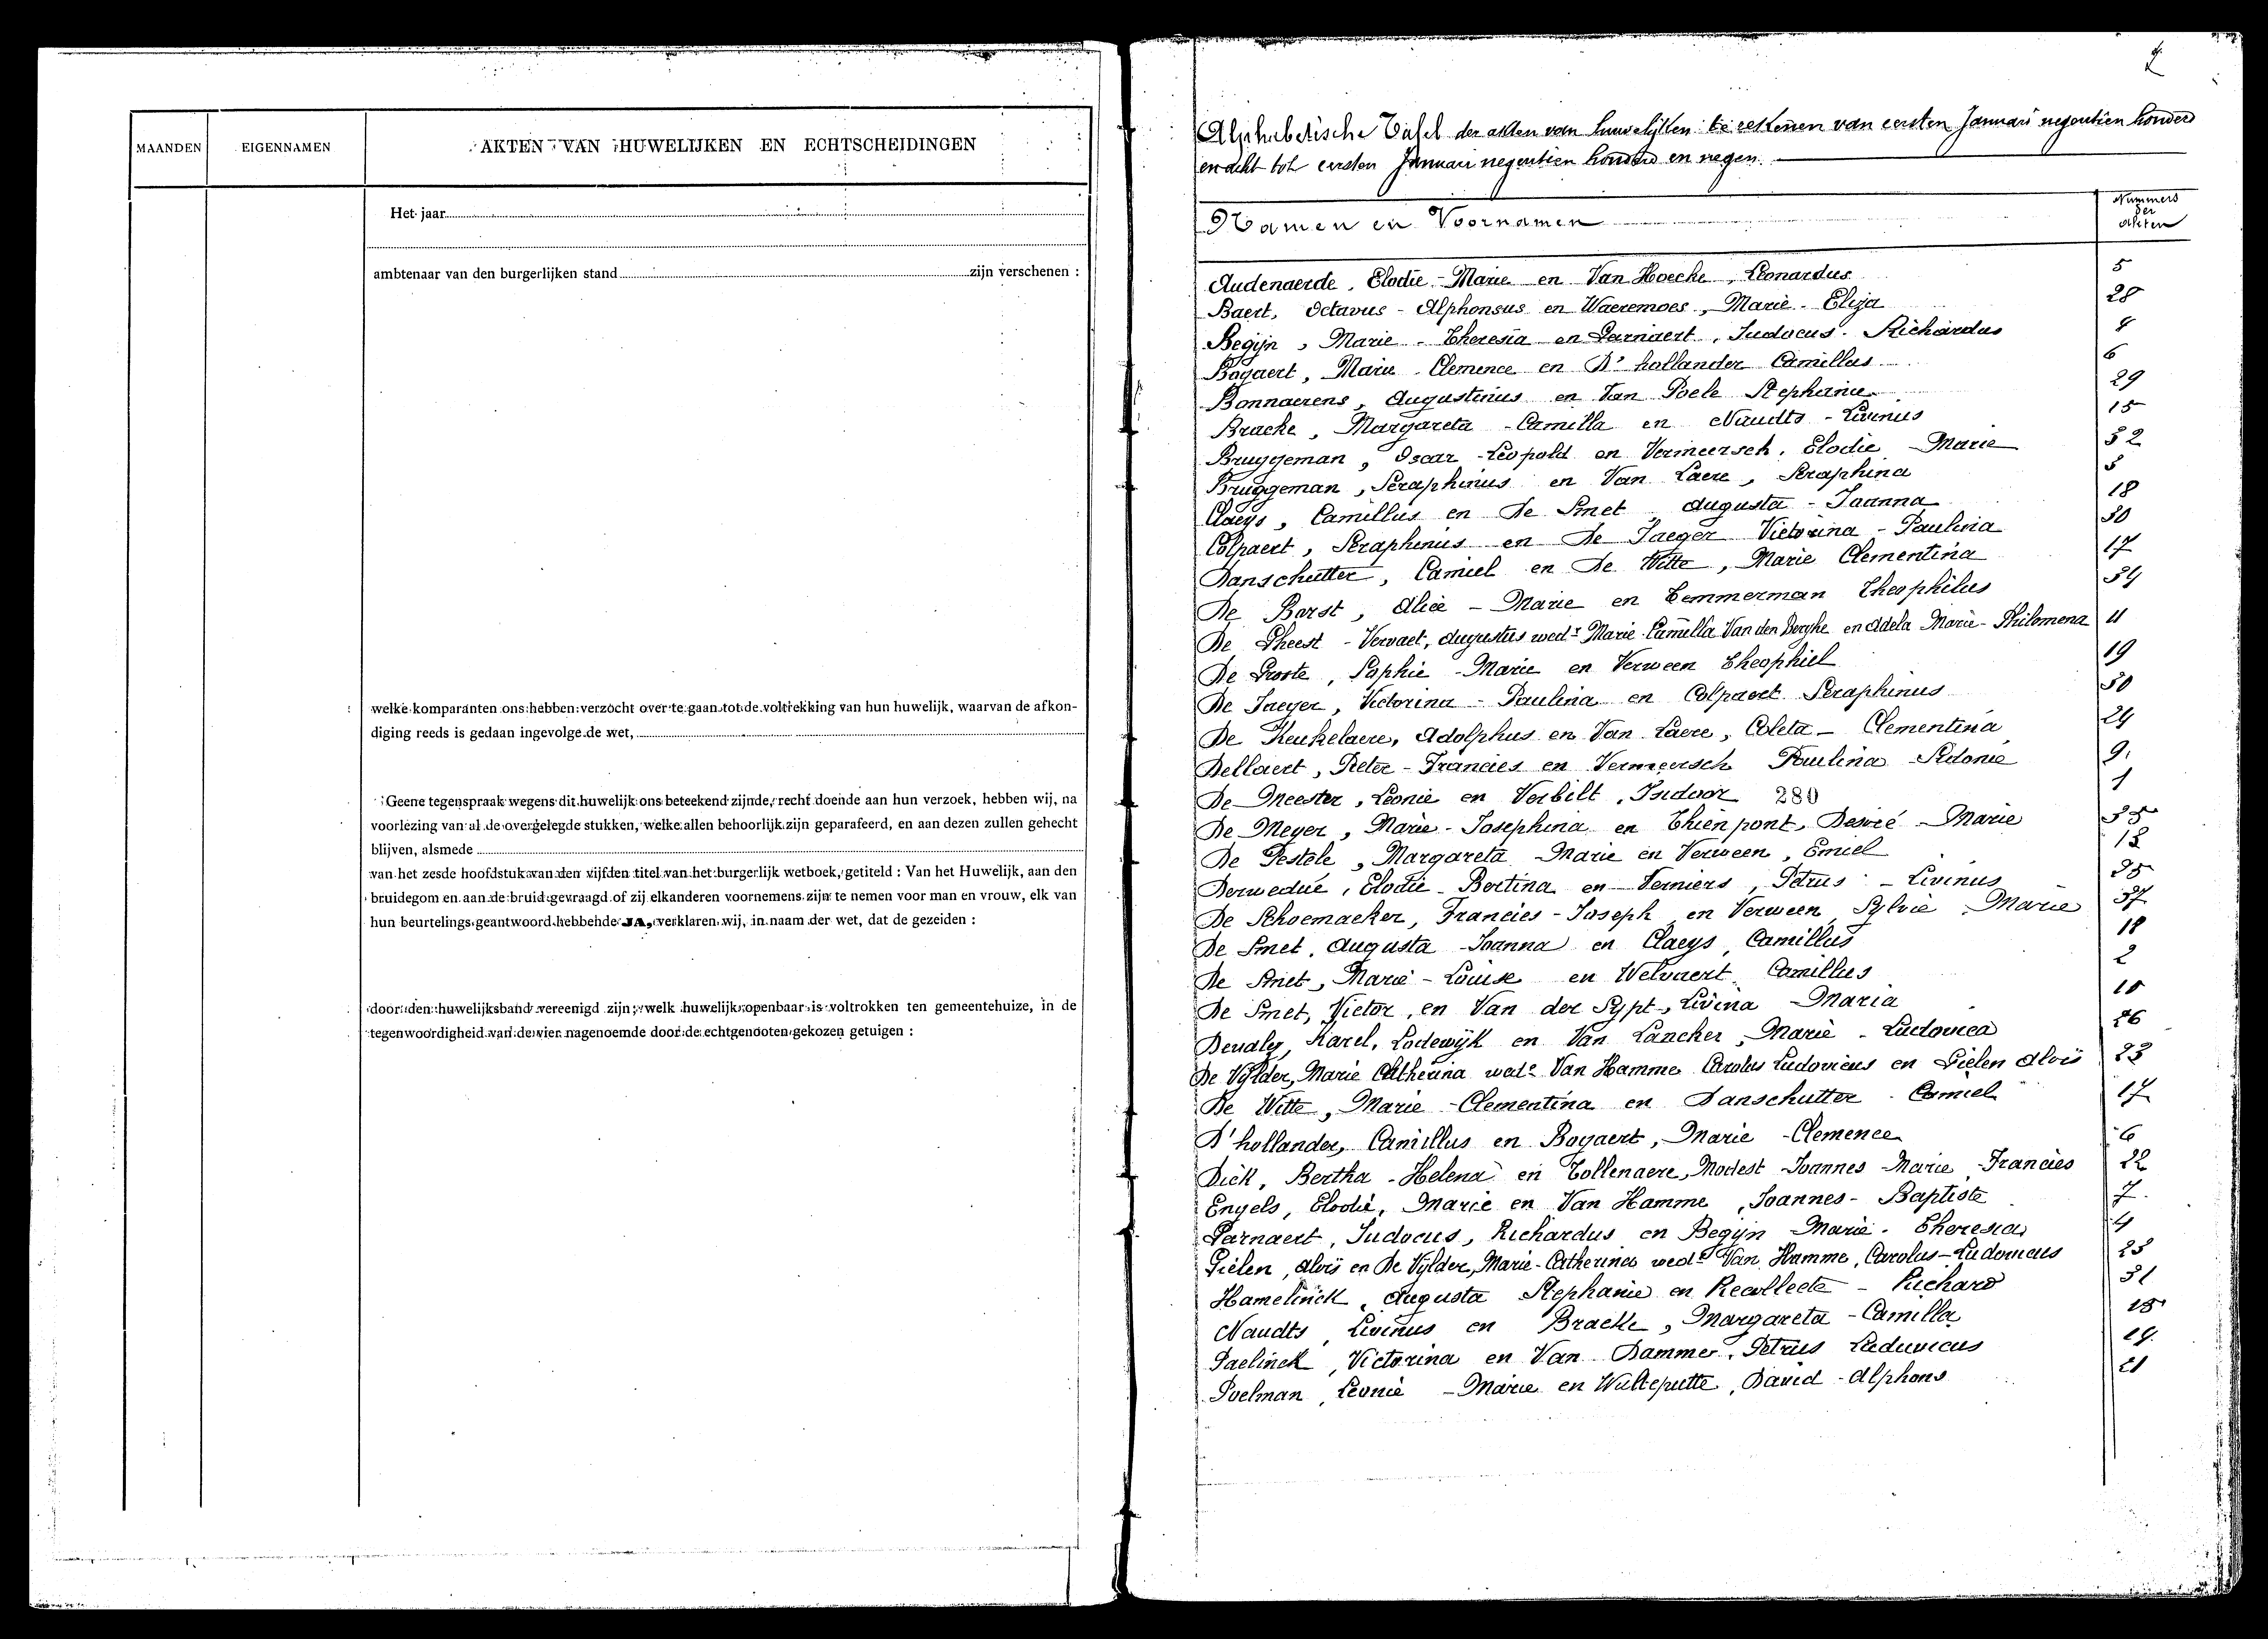 MAANDEN
EIGENNAMEN
AKTEN VAN HUWELIJKEN EN ECHTSCHEIDINGEN
Het jaar
ambtenaar van den burgerlijken stand zijn verschenen :
welke komparanten ons hebben verzocht over te gaan tot de voltrekking van hun huwelijk, waarvan de afkon-
diging reeds is gedaan ingevolge de wet,
Geene tegenspraak wegens dit huwelijk ons beteekend zijnde, recht doende aan hun verzoek, hebben wij, na
voorlezing van al de overgelegde stukken, welke allen behoorlijk zijn geparafeerd, en aan dezen zullen gehecht
blijven, alsmede
van het zesde hoofdstuk van den vijfden titel van het burgerlijk wetboek, getiteld : Van het Huwelijk, aan den
bruidegom en aan de bruid gevraagd of zij elkanderen voornemens zijn te nemen voor man en vrouw, elk van
hun beurtelings geantwoord hebbende JA, verklaren wij, in naam der wet, dat de gezeiden :
door den huwelijksband vereenigd zijn; welk huwelijk openbaar is voltrokken ten gemeentehuize, in de
tegenwoordigheid van de vier nagenoemde door de echtgenooten gekozen getuigen :
2
Alphabetische Tafel der akten van huwelijken te rekenen van eersten Januari negentien honderd
en acht tot eersten Januari negentien honderd en negen.
Namen en Voornamen
Nummers
der
Akten
Audenaerde, Elodie - Marie en Van Hoecke, Leonardus 5
Baert, Octavus - Alphonsus en Waeremoes, Marie - Eliza 28
Begijn, Marie - Theresia en Parnaert, Judocus - Richardus 4
Bogaert, Marie - Clemence en D'hollander Camillus 6
Bonnaerens, Augustinus en Van Poele Stephanie 29
Bracke, Margareta - Camilla en Naudts - Livinus 15
Bruggeman, Oscar - Leopold en Vermeersch, Elodie - Marie 32
Bruggeman, Seraphinus en Van Laere, Seraphina
Claeys, Camillus en De Smet, Augusta - Joanna 18
Colpaert, Seraphinus en De Jaeger Victorina - Paulina 30
Danschutter, Camiel en De Witte, Marie Clementina 17
De Borst, Alice - Marie en Temmerman Theophilus 34
De Gheest - Vervaet, Augustus wedr Marie Camilla Van den Berghe en Adela Marie - Philomena 11
De Groote, Sophie - Marie en Verween Theophiel 19
De Jaeger, Victorina - Paulina en Colpaert Seraphinus 30
De Keukelaere, Adolphus en Van Laere, Coleta - Clementina 24
Dellaert, Pieter - Francies en Vermeersch Paulina Sidonie 9
De Meester, Leonie en Verbilt, Isidoor 280 1
De Meyer, Marie - Josephina en Thienpont, Desiré - Marie 35
De Pestele, Margareta - Marie en Verween, Emiel 13
Derwedue, Elodie - Bertina en Verniers, Petrus - Livinus 25
De Schoemaeker, Francies - Joseph en Verween, Sylvie - Marie 37
De Smet, Augusta - Joanna en Claeys, Camillus 18
De Smet, Marie - Louise en Welvaert, Camillus 2
De Smet, Victor, en Van der Sypt, Livina - Maria 10
Karel, Lodewijk en Van Lancker, Marie - Ludovica 26
De Vijlder, Marie Catherina wede Van Hamme Carolus Ludovicus en Gielen Aloïs 23
De Witte, Marie - Clementina en Danschutter - Camiel 17
D'hollander, Camillus en Bogaert, Marie - Clemence 6
Dick, Bertha - Helena en Tollenaere, Modest - Joannes - Marie - Francies 22
Engels, Elodie, Marie en Van Hamme, Joannes - Baptiste 7
Parnaert, Judocus, Richardus en Begijn Marie - Theresia 4
Gielen, Aloïs en De Vijlder, Marie - Catherina wede Van Hamme, Carolus - Ludovicus 23
Hamelinck, Augusta Stephanie en Recollecte - Richard 31
Naudts, Livinus en Bracke, Margareta - Camilla 15
Paelinck, Victorina en Van Damme, Petrus Ludovicus 14
Poelman, Leonie - Marie en Walteputte, David - Alphons 21